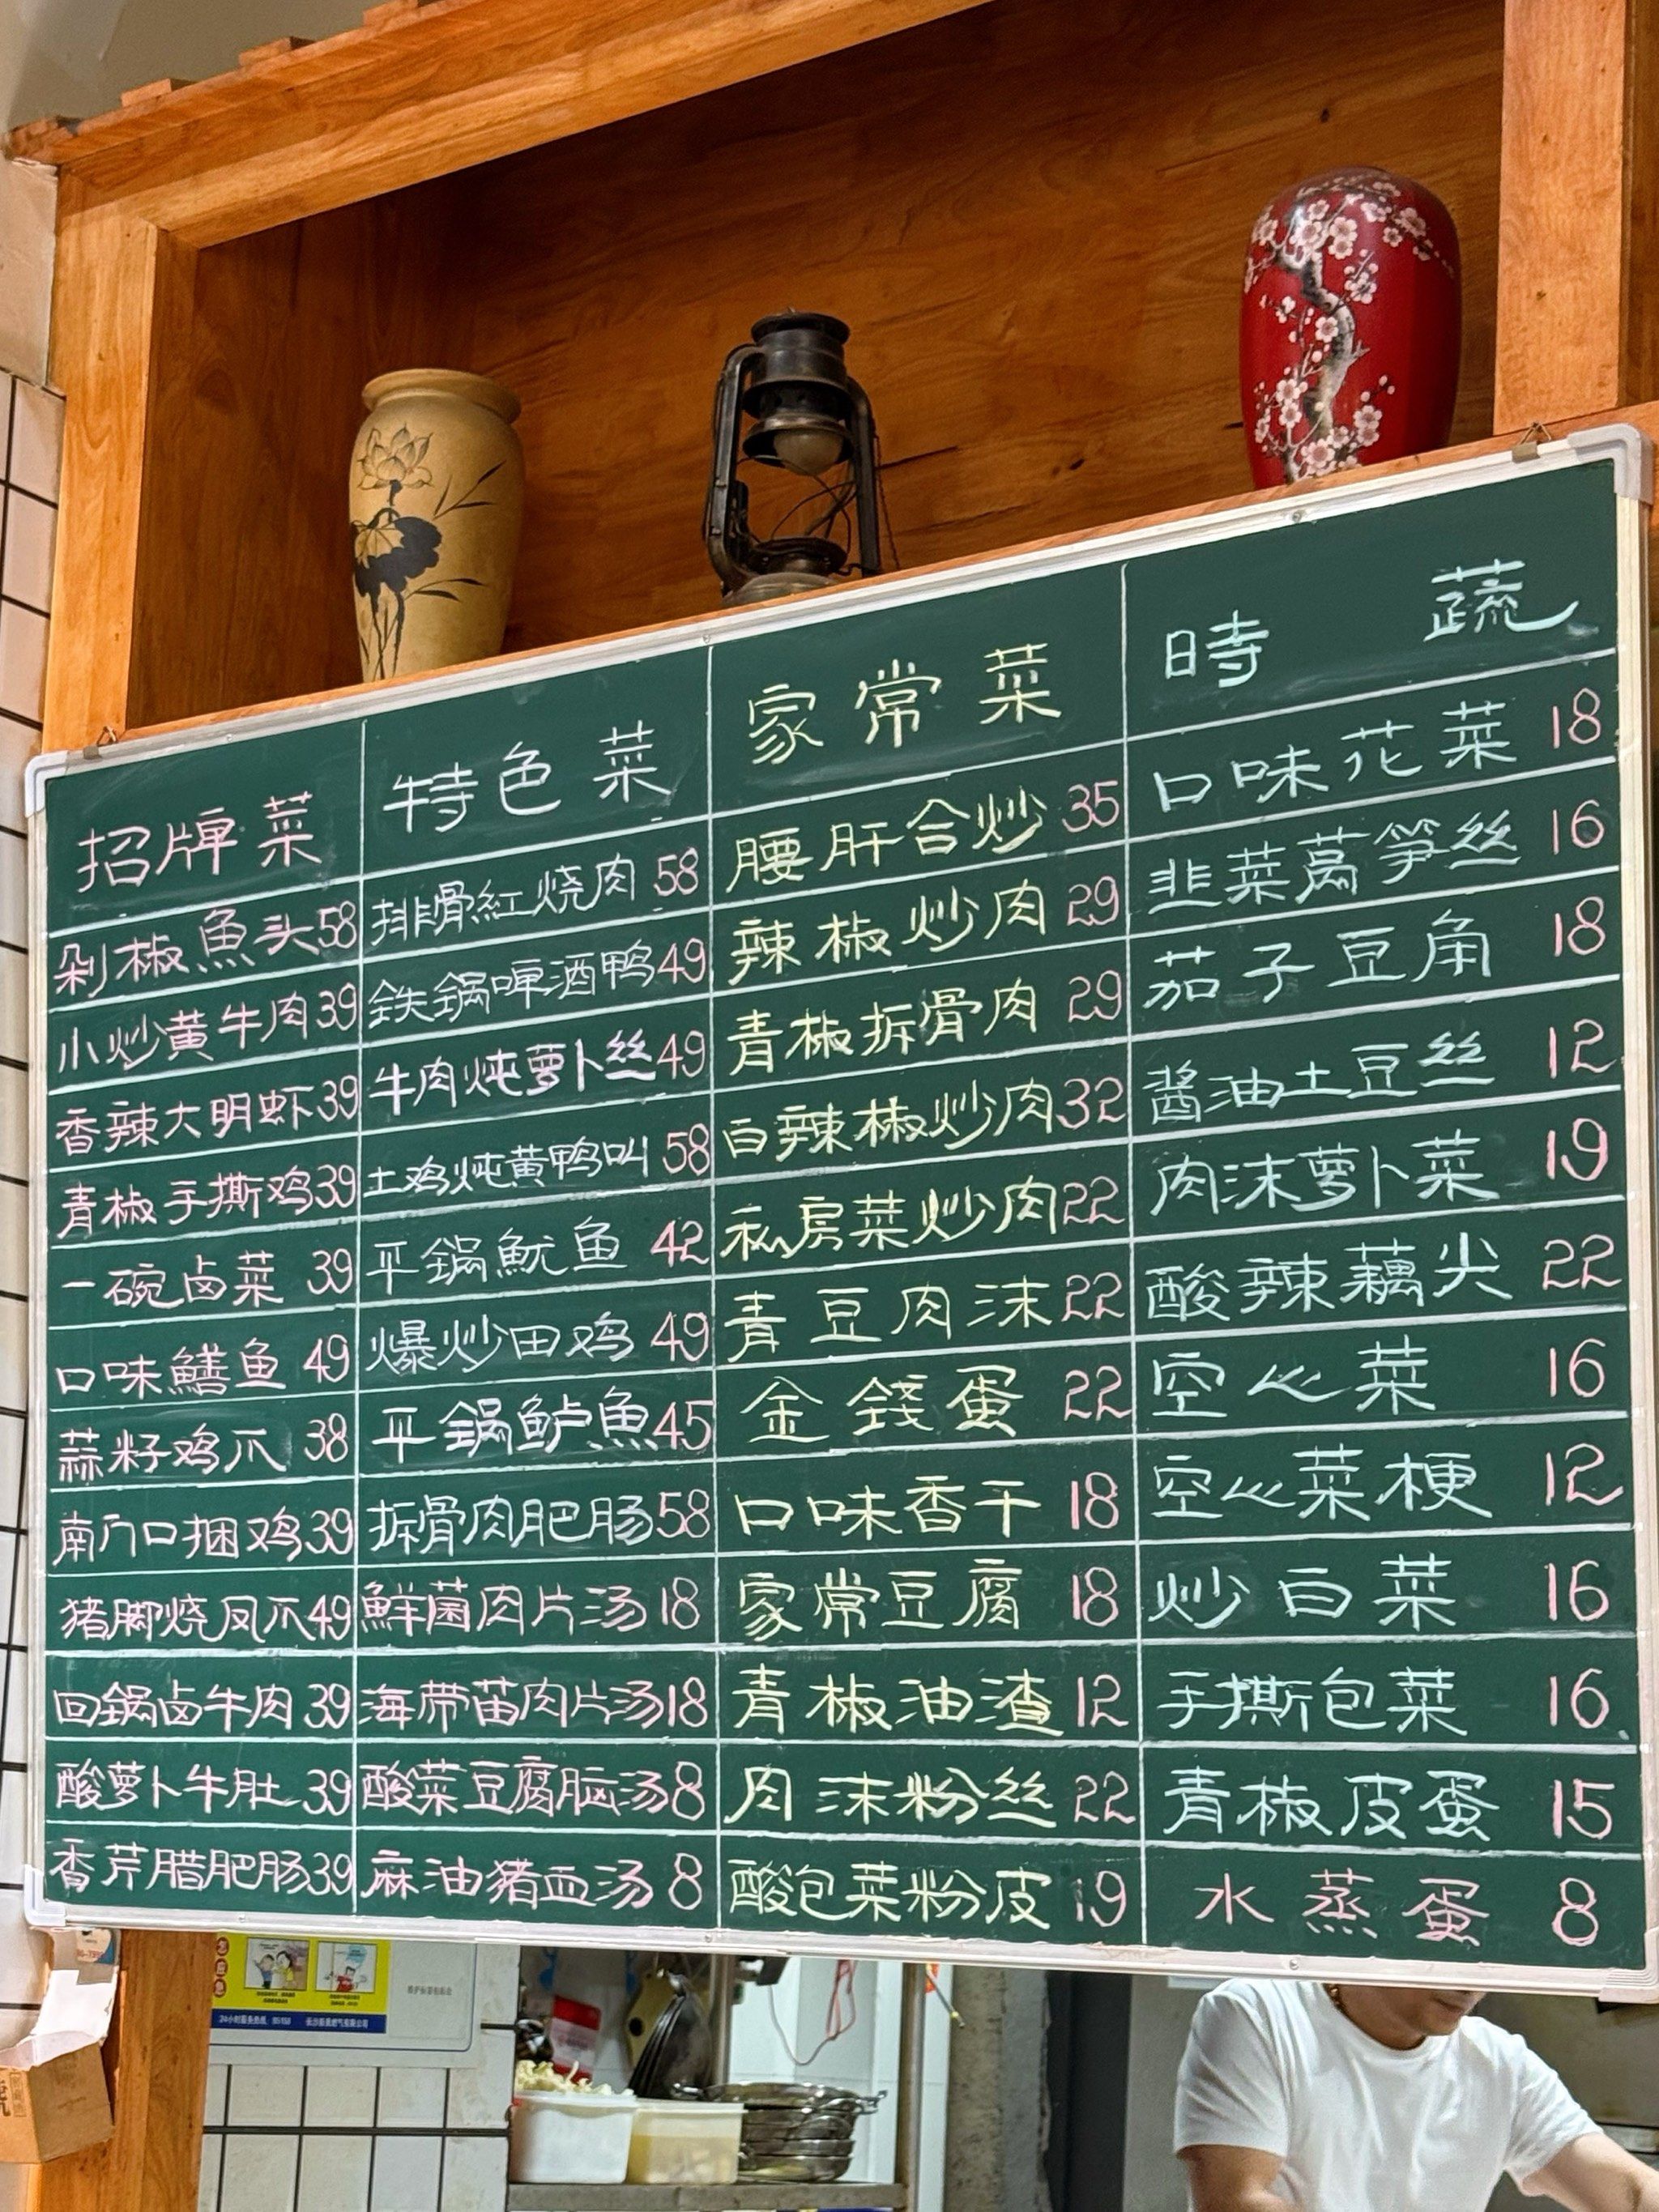 招牌菜
剁椒魚头58
小炒黄牛肉39
香辣大明虾39
青椒手撕鸡39
一碗卤菜 39
口味鱔鱼 49
蒜籽鸡爪 38
南门口捆鸡39
猪脚烧凤爪49
回鍋卤牛肉 39
酸萝卜牛肚 39
香芹腊肥肠39
特色菜
排骨紅烧肉 58
鉄鍋啤酒鸭49
牛肉炖萝卜丝49
土鸡炖黄鸭叫 58
平鍋魷鱼 42
爆炒田鸡 49
平鍋鲈魚45
拆骨肉肥肠58
鮮菌肉片汤18
海带苗肉片汤18
酸菜豆腐脑汤8
麻油猪血汤 8
家常菜
腰肝合炒 35
辣椒炒肉 29
青椒拆骨肉 29
白辣椒炒肉32
私房菜炒肉22
青豆肉沫22
金錢蛋 22
口味香干 18
家常豆腐 18
青椒油渣 12
肉沫粉丝 22
酸包菜粉皮 19
時蔬
口味花菜 18
韭菜萵笋丝 16
茄子豆角 18
酱油土豆丝 12
肉沫萝卜菜 19
酸辣藕尖 22
空心菜 16
空心菜梗 12
炒白菜 16
手撕包菜 16
青椒皮蛋 15
水蒸蛋 8